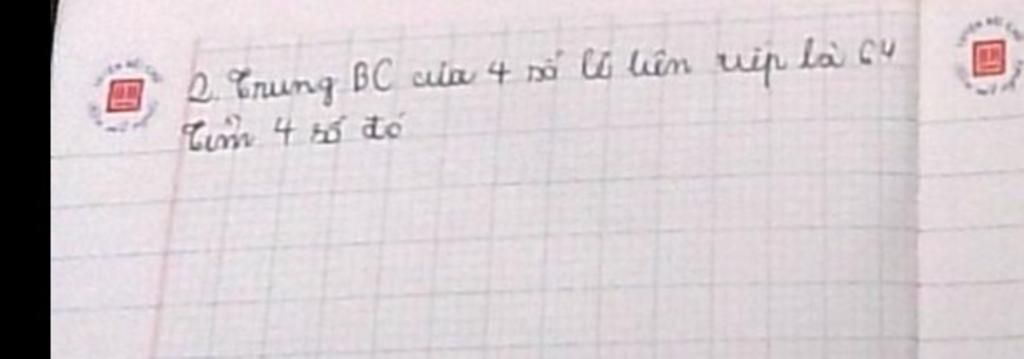 2. Trung BC của 4 số lẻ liên tiếp là 64
Tìm 4 số đó